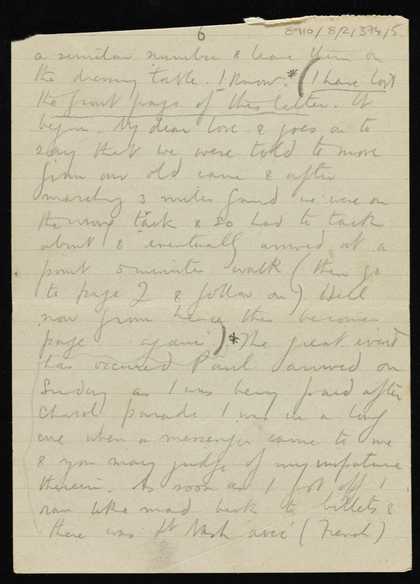 6
8910/8/2/374/5
a similar number & leave them on
the dressing table. I know.* (I have lost
the front page of this letter. It
began. My dear Love & goes on to
say that we were told to move
from our old camp & after
marching 3 miles found we were on
the wrong tack & so had to tack
about & eventually arrived at a
point 5 minutes walk (then go
to page 2 & follow on) Well
now from hence this becomes
page again)* The great event
has occured Paul arrived on
Sunday as I was being paid after
Church parade I was in a long
cue when a messenger came to me
& you may judge of my impatience
therein. As soon as I got off I
ran like mad back to billets &
there was Lt Nash avec (French)